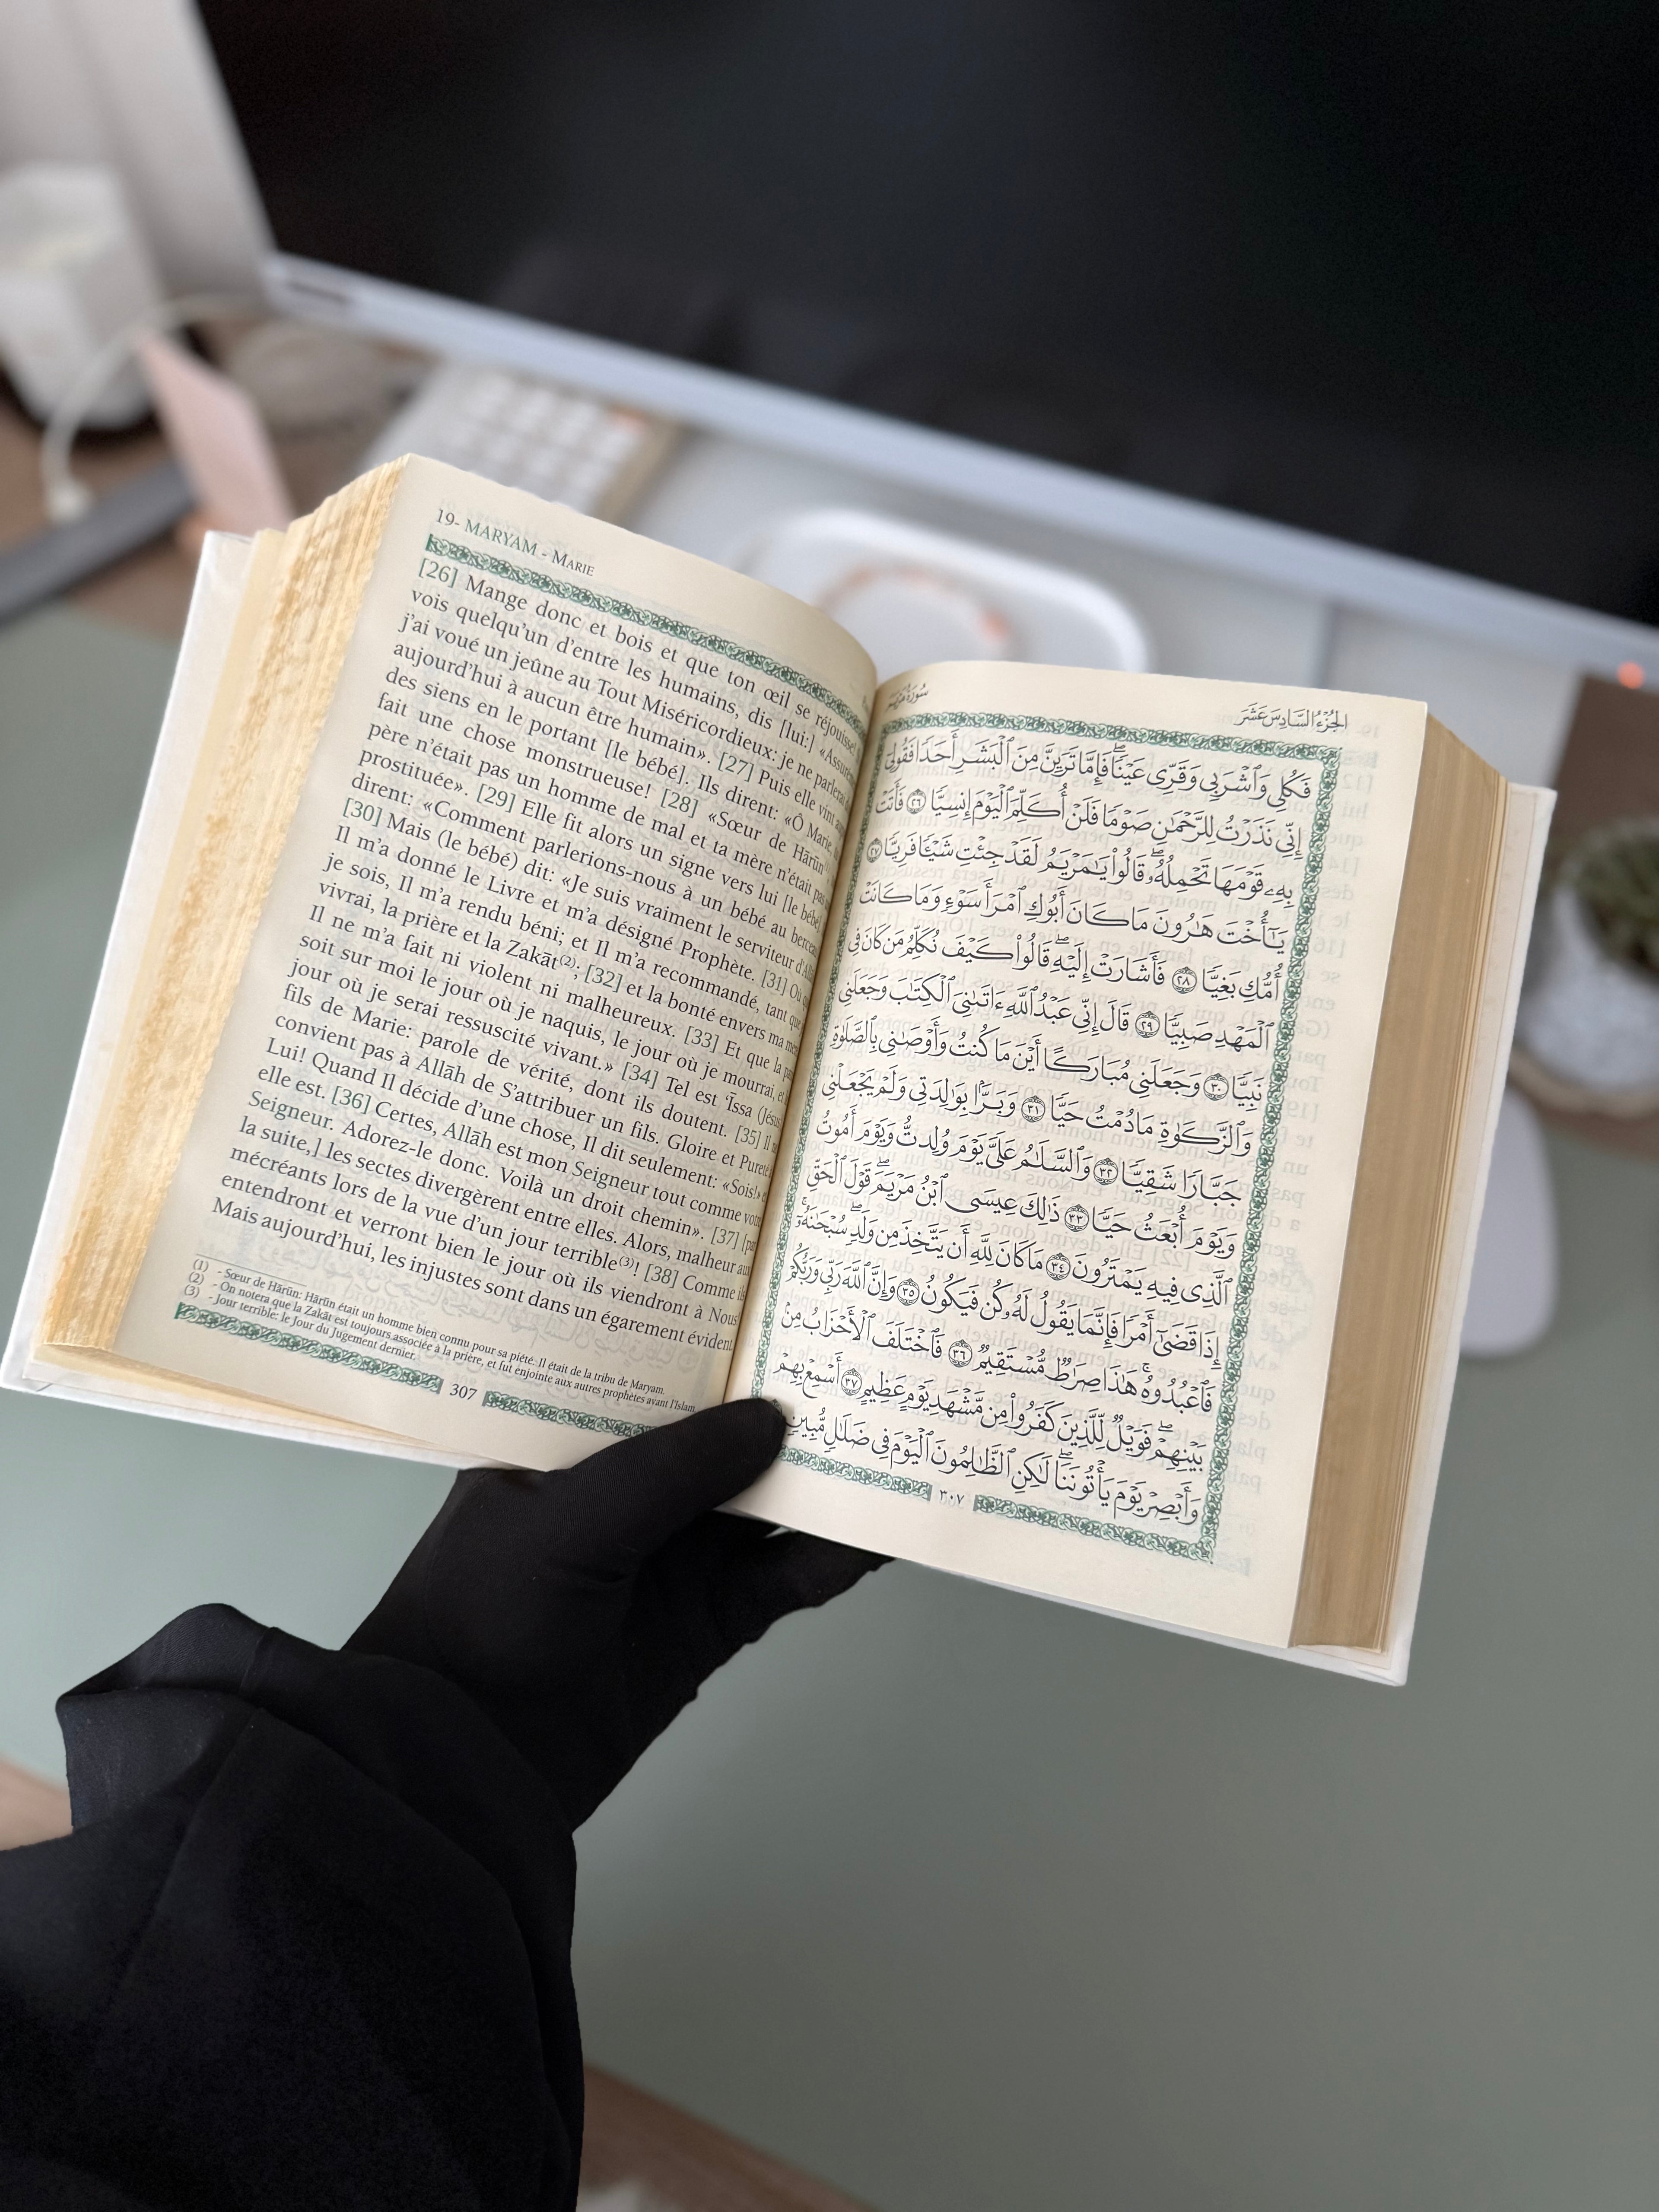 19- MARYAM - MARIE
[26] Mange donc et bois et que ton œil se réjouisse!
vois quelqu'un d'entre les humains, dis [lui:] «Assuré
j'ai voué un jeûne au Tout Miséricordieux: je ne parlerai
aujourd'hui à aucun être humain». [27] Puis elle vint
des siens en le portant [le bébé]. Ils dirent: «Ô Marie,
fait une chose monstrueuse! [28] «Sœur de Hārūn
père n'était pas un homme de mal et ta mère n'était pas
prostituée». [29] Elle fit alors un signe vers lui [le bébé]
dirent: «Comment parlerions-nous à un bébé au berceau
[30] Mais (le bébé) dit: «Je suis vraiment le serviteur d'Al
Il m'a donné le Livre et m'a désigné Prophète. [31] Où
je sois, Il m'a rendu béni; et Il m'a recommandé, tant que
vivrai, la prière et la Zakāt(2); [32] et la bonté envers ma
Il ne m'a fait ni violent ni malheureux. [33] Et que la
soit sur moi le jour où je naquis, le jour où je mourrai, et
jour où je serai ressuscité vivant.» [34] Tel est 'Īssa (Jésus
fils de Marie: parole de vérité, dont ils doutent. [35] Il
convient pas à Allāh de S'attribuer un fils. Gloire et Pureté
Lui! Quand Il décide d'une chose, Il dit seulement: «Sois!»
elle est. [36] Certes, Allāh est mon Seigneur tout comme
Seigneur. Adorez-le donc. Voilà un droit chemin». [37] [
la suite,] les sectes divergèrent entre elles. Alors, malheur aux
mécréants lors de la vue d'un jour terrible(3)! [38] Comme ils
entendront et verront bien le jour où ils viendront à Nous
Mais aujourd'hui, les injustes sont dans un égarement évident.
(1) - Sœur de Hārūn: Hārūn était un homme bien connu pour sa piété. Il était de la tribu de Maryam.
(2) - On notera que la Zakāt est toujours associée à la prière, et fut enjointe aux autres prophètes avant l'Islam.
(3) - Jour terrible: le Jour du Jugement dernier.
307
الجزء السادس عشر
سورة مريم
فَكُلِى وَٱشْرَبِى وَقَرِّى عَيْنًا ۖ فَإِمَّا تَرَيِنَّ مِنَ ٱلْبَشَرِ أَحَدًا فَقُولِىٓ
إِنِّى نَذَرْتُ لِلرَّحْمَٰنِ صَوْمًا فَلَنْ أُكَلِّمَ ٱلْيَوْمَ إِنسِيًّا ٢٦ فَأَتَتْ
بِهِۦ قَوْمَهَا تَحْمِلُهُۥ ۖ قَالُوا۟ يَٰمَرْيَمُ لَقَدْ جِئْتِ شَيْـًٔا فَرِيًّا ٢٧
يَٰٓأُخْتَ هَٰرُونَ مَا كَانَ أَبُوكِ ٱمْرَأَ سَوْءٍ وَمَا كَانَتْ
أُمُّكِ بَغِيًّا ٢٨ فَأَشَارَتْ إِلَيْهِ ۖ قَالُوا۟ كَيْفَ نُكَلِّمُ مَن كَانَ فِى
ٱلْمَهْدِ صَبِيًّا ٢٩ قَالَ إِنِّى عَبْدُ ٱللَّهِ ءَاتَىٰنِىَ ٱلْكِتَٰبَ وَجَعَلَنِى
نَبِيًّا ٣٠ وَجَعَلَنِى مُبَارَكًا أَيْنَ مَا كُنتُ وَأَوْصَٰنِى بِٱلصَّلَوٰةِ
وَٱلزَّكَوٰةِ مَا دُمْتُ حَيًّا ٣١ وَبَرًّۢا بِوَٰلِدَتِى وَلَمْ يَجْعَلْنِى
جَبَّارًا شَقِيًّا ٣٢ وَٱلسَّلَٰمُ عَلَىَّ يَوْمَ وُلِدتُّ وَيَوْمَ أَمُوتُ
وَيَوْمَ أُبْعَثُ حَيًّا ٣٣ ذَٰلِكَ عِيسَى ٱبْنُ مَرْيَمَ ۚ قَوْلَ ٱلْحَقِّ
ٱلَّذِى فِيهِ يَمْتَرُونَ ٣٤ مَا كَانَ لِلَّهِ أَن يَتَّخِذَ مِن وَلَدٍ ۖ سُبْحَٰنَهُۥٓ ۚ
إِذَا قَضَىٰٓ أَمْرًا فَإِنَّمَا يَقُولُ لَهُۥ كُن فَيَكُونُ ٣٥ وَإِنَّ ٱللَّهَ رَبِّى وَرَبُّكُمْ
فَٱعْبُدُوهُ ۚ هَٰذَا صِرَٰطٌ مُّسْتَقِيمٌ ٣٦ فَٱخْتَلَفَ ٱلْأَحْزَابُ مِنۢ
بَيْنِهِمْ ۖ فَوَيْلٌ لِّلَّذِينَ كَفَرُوا۟ مِن مَّشْهَدِ يَوْمٍ عَظِيمٍ ٣٧ أَسْمِعْ بِهِمْ
وَأَبْصِرْ يَوْمَ يَأْتُونَنَا ۖ لَٰكِنِ ٱلظَّٰلِمُونَ ٱلْيَوْمَ فِى ضَلَٰلٍ مُّبِينٍ
٣٠٧